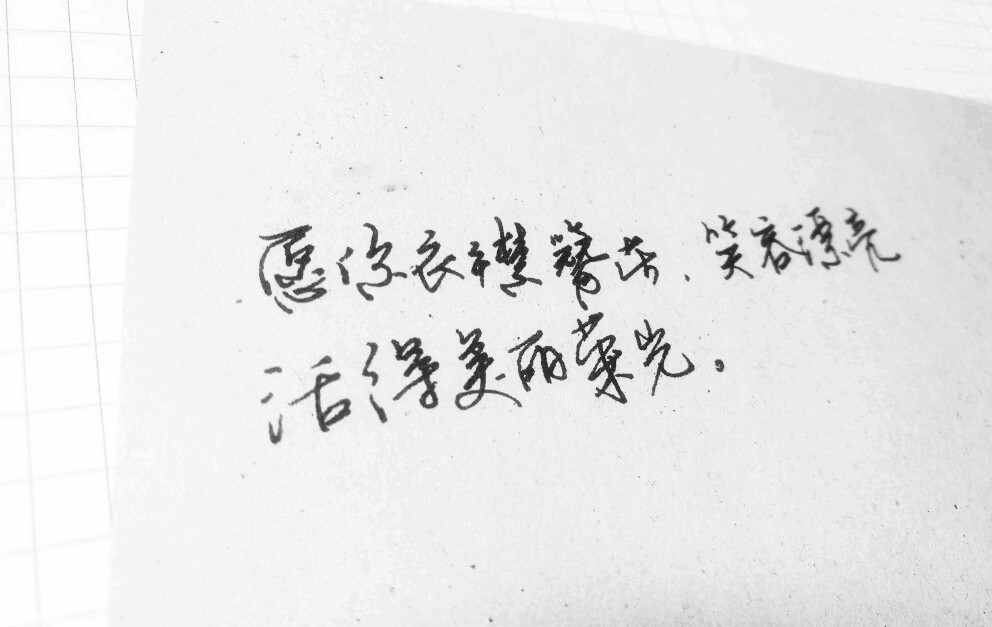 愿你衣襟馨芬、笑容漂亮
活得美丽荣光。